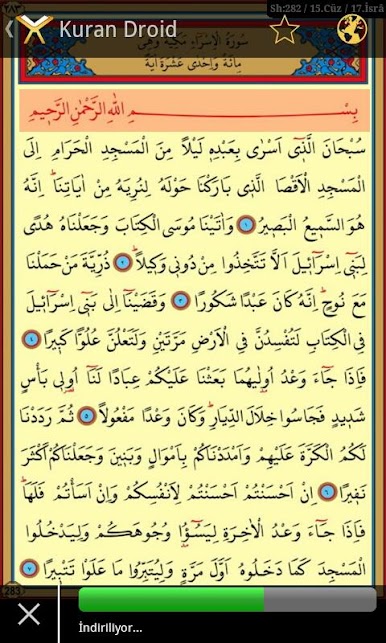 ٢٨٣
Sh:282 / 15.Cüz / 17.İsrâ
Kuran Droid
سُورَةُ الْاِسْرَاءِ مَكِّيَّةٌ وَهِىَ
مِائَةٌ وَاِحْدٰى عَشْرَةَ اٰيَةً
بِسْمِ اللّٰهِ الرَّحْمٰنِ الرَّحِيمِ
سُبْحَانَ الَّذٖٓى اَسْرٰى بِعَبْدِهٖ لَيْلًا مِنَ الْمَسْجِدِ الْحَرَامِ اِلَى
الْمَسْجِدِ الْاَقْصَا الَّذٖى بَارَكْنَا حَوْلَهُ لِنُرِيَهُ مِنْ اٰيَاتِنَاؕ اِنَّهُ
هُوَ السَّمٖيعُ الْبَصٖيرُ ﴿١﴾ وَاٰتَيْنَا مُوسَى الْكِتَابَ وَجَعَلْنَاهُ هُدًى
لِبَنٖٓى اِسْرَٓائٖلَ اَلَّا تَتَّخِذُوا مِنْ دُونٖى وَكٖيلًاؕ ﴿٢﴾ ذُرِّيَّةَ مَنْ حَمَلْنَا
مَعَ نُوحٍؕ اِنَّهُ كَانَ عَبْدًا شَكُورًا ﴿٣﴾ وَقَضَيْنَٓا اِلٰى بَنٖٓى اِسْرَٓائٖلَ
فِى الْكِتَابِ لَتُفْسِدُنَّ فِى الْاَرْضِ مَرَّتَيْنِ وَلَتَعْلُنَّ عُلُوًّا كَبٖيرًا ﴿٤﴾
فَاِذَا جَٓاءَ وَعْدُ اُو۫لٰيهُمَا بَعَثْنَا عَلَيْكُمْ عِبَادًا لَنَٓا اُو۬لٖى بَاْسٍ
شَدٖيدٍ فَجَاسُوا خِلَالَ الدِّيَارِؕ وَكَانَ وَعْدًا مَفْعُولًا ﴿٥﴾ ثُمَّ رَدَدْنَا
لَكُمُ الْكَرَّةَ عَلَيْهِمْ وَاَمْدَدْنَاكُمْ بِاَمْوَالٍ وَبَنٖينَ وَجَعَلْنَاكُمْ اَكْثَرَ
نَفٖيرًا ﴿٦﴾ اِنْ اَحْسَنْتُمْ اَحْسَنْتُمْ لِاَنْفُسِكُمْ وَاِنْ اَسَأْتُمْ فَلَهَاؕ
فَاِذَا جَٓاءَ وَعْدُ الْاٰخِرَةِ لِيَسُٓؤُ۫ا وُجُوهَكُمْ وَلِيَدْخُلُوا
الْمَسْجِدَ كَمَا دَخَلُوهُ اَوَّلَ مَرَّةٍ وَلِيُتَبِّرُوا مَا عَلَوْا تَتْبٖيرًا ﴿٧﴾
283
İndiriliyor...